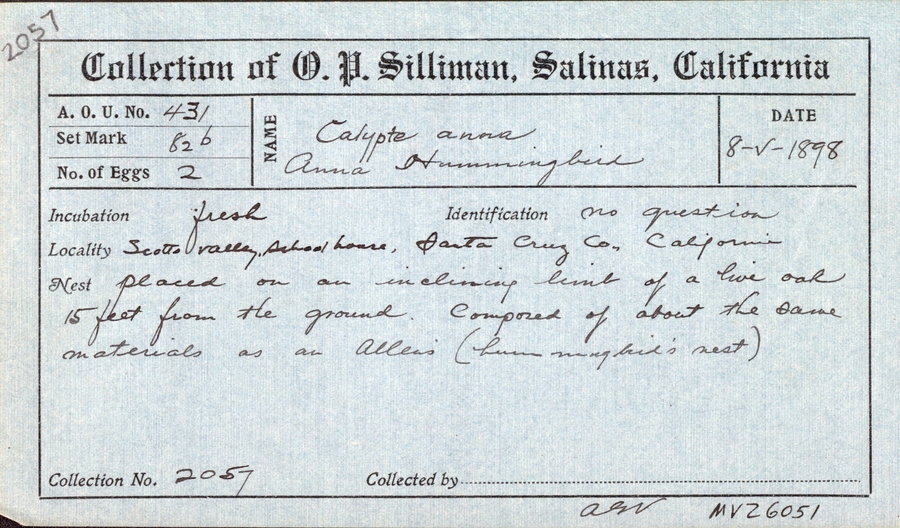 2057
Collection of O. P. Silliman, Salinas, California
A. O. U. No. 431
Set Mark 82b
No. of Eggs 2
NAME
Calypte anna
Anna Hummingbird
DATE
8-V-1898
Incubation fresh Identification no question
Locality Scotts valley, school house, Santa Cruz Co., California
Nest placed on an inclining limb of a live oak
15 feet from the ground. Composed of about the same
materials as an Allens (hummingbird's nest)
Collection No. 2057 Collected by
MVZ6051